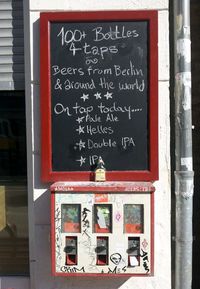 100+ Bottles
4 taps
Beers from Berlin
& around the world
On tap today....
Pale Ale
Helles
Double IPA
IPA